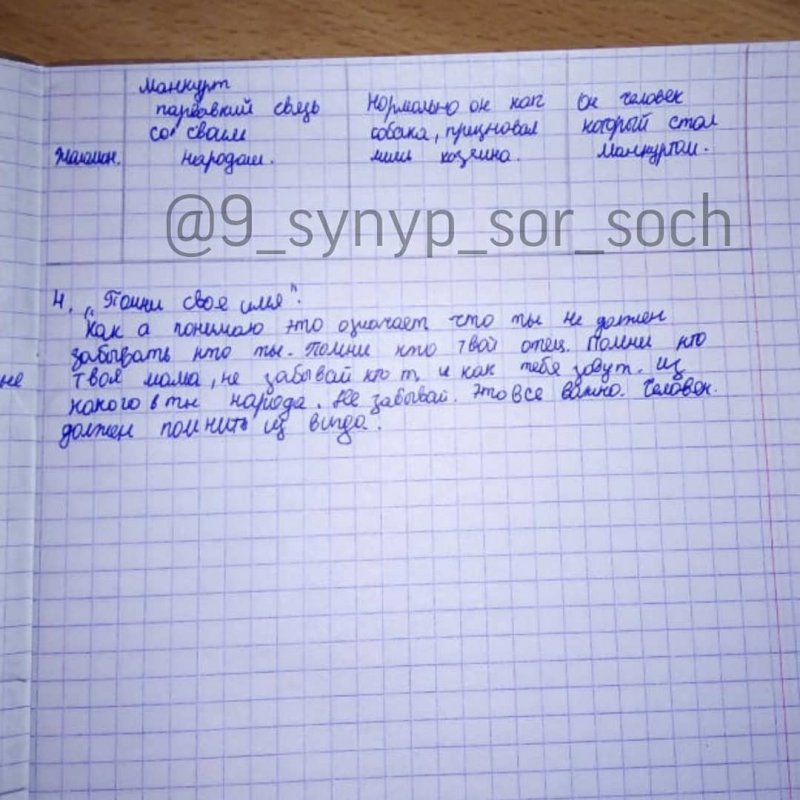 манкурт
парвавший связь
со сваим
народам.
Жаламан.
Нормально он как
собака, признавал
лишь хозяина.
Он человек
который стал
манкуртом.
@9_synyp_sor_soch
4. "Помни своя имя".
Как а понимаю это означает что ты не должен
забывать кто ты. Помни кто твой отец. Помни кто
твоя мама, не забывай кто т и как тебя зовут. из
какого в ты народа. Не забывай. Это все важно. Человек.
должен помнить из
не